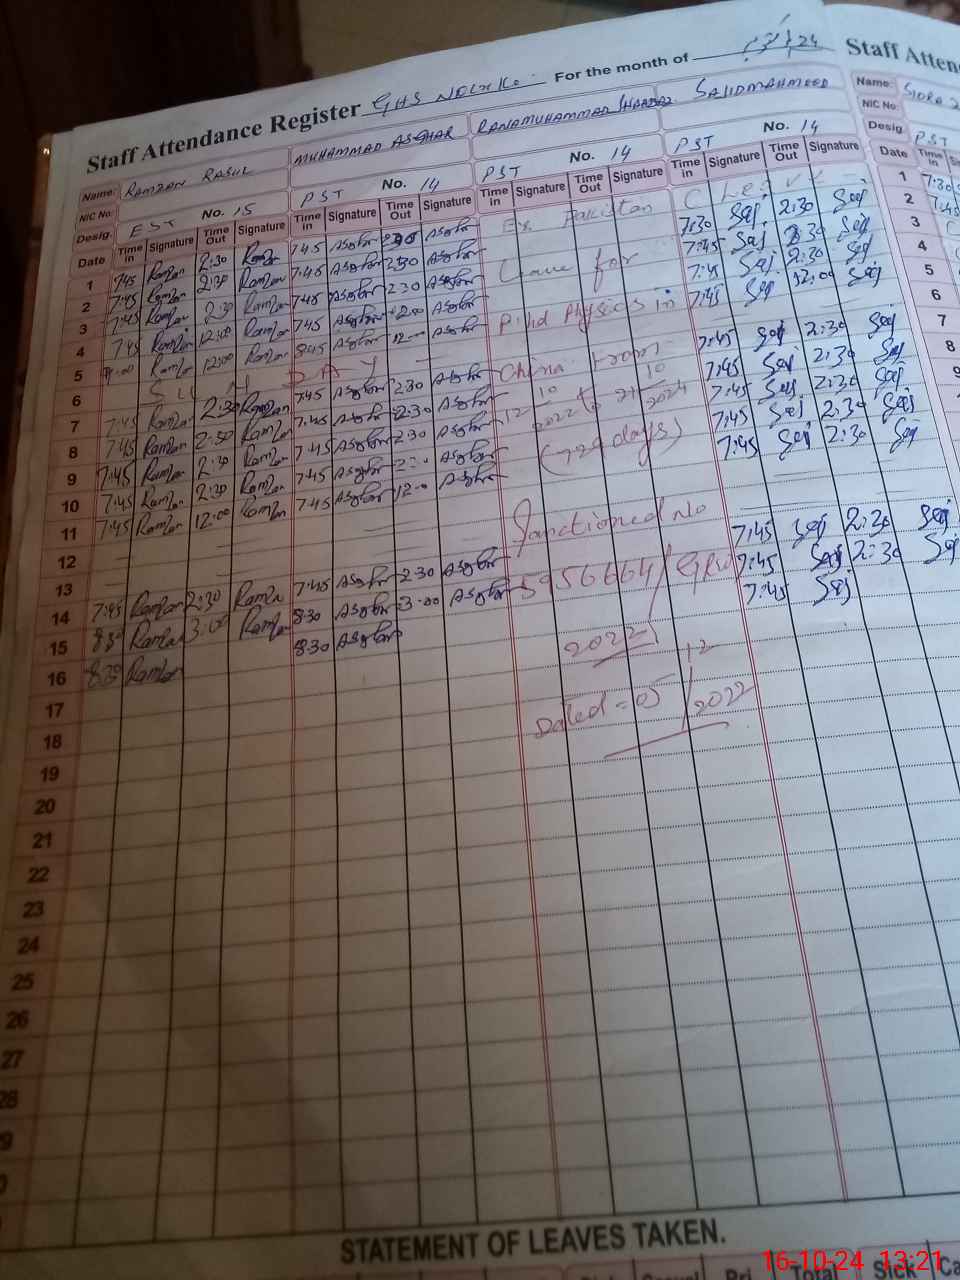 Staff Attendance Register GHS For the month of 24
Staff Atten
Name: RAMZAN RASUL MUHAMMAD ASGHAR RANA MUHAMMAD SAJID MAHMOOD
Name: SIDRA
NIC No: No. 15 No. 14 No. 14 No. 14
NIC No:
Desig. EST PST PST PST
Desig. PST
Date Time in Signature Time Out Signature Time in Signature Time Out Signature Time in Signature Time Out Signature Time in Signature Time Out Signature
Date Time in
1 7:45 Ramzan 2:30 Ramzan 7:45 Asghar 2:30 Asghar Ex Pakistan
2 7:45 Ramzan 2:30 Ramzan 7:45 Asghar 2:30 Asghar Leave for 7:30 Saj 2:30 Saj
3 7:45 Ramzan 2:30 Ramzan 7:45 Asghar 2:30 Asghar 7:45 Saj 2:30 Saj
4 7:45 Ramzan 12:00 Ramzan 7:45 Asghar 12:00 Asghar Physics in 7:45 Saj 2:30 Saj
5 Ramzan 12:00 Ramzan 8:45 Asghar 12:00 Asghar China from 7:45 Saj 12:00 Saj
6 SUNDAY
7 7:45 Ramzan 2:30 Ramzan 7:45 Asghar 2:30 Asghar 7:45 Saj 2:30 Saj
8 7:45 Ramzan 2:30 Ramzan 7:45 Asghar 2:30 Asghar 2022 to 2024 7:45 Saj 2:30 Saj
9 7:45 Ramzan 2:30 Ramzan 7:45 Asghar 2:30 Asghar days) 7:45 Saj 2:30 Saj
10 7:45 Ramzan 2:30 Ramzan 7:45 Asghar Asghar 7:45 Saj 2:30 Saj
11 7:45 Ramzan 12:00 Ramzan 7:45 Asghar 12:00 Asghar 7:45 Saj 2:30 Saj
12 Sanctioned No
13
14 7:45 Ramzan 2:30 Ramzan 7:45 Asghar 2:30 Asghar 5956664/ 7:45 Saj 2:30 Saj
15 8:30 Ramzan 3:00 Ramzan 8:30 Asghar 3:00 Asghar 2022 7:45 Saj 2:30 Saj
16 8:30 Ramzan 8:30 Asghar 7:45 Saj
17 Dated = 05/12/2022
18
19
20
21
22
23
24
25
26
27
28
1 7:30
2 7:45
3
4
5
6
7
8
9
STATEMENT OF LEAVES TAKEN.
Pri Total Sick Ca
16-10-24 13:21